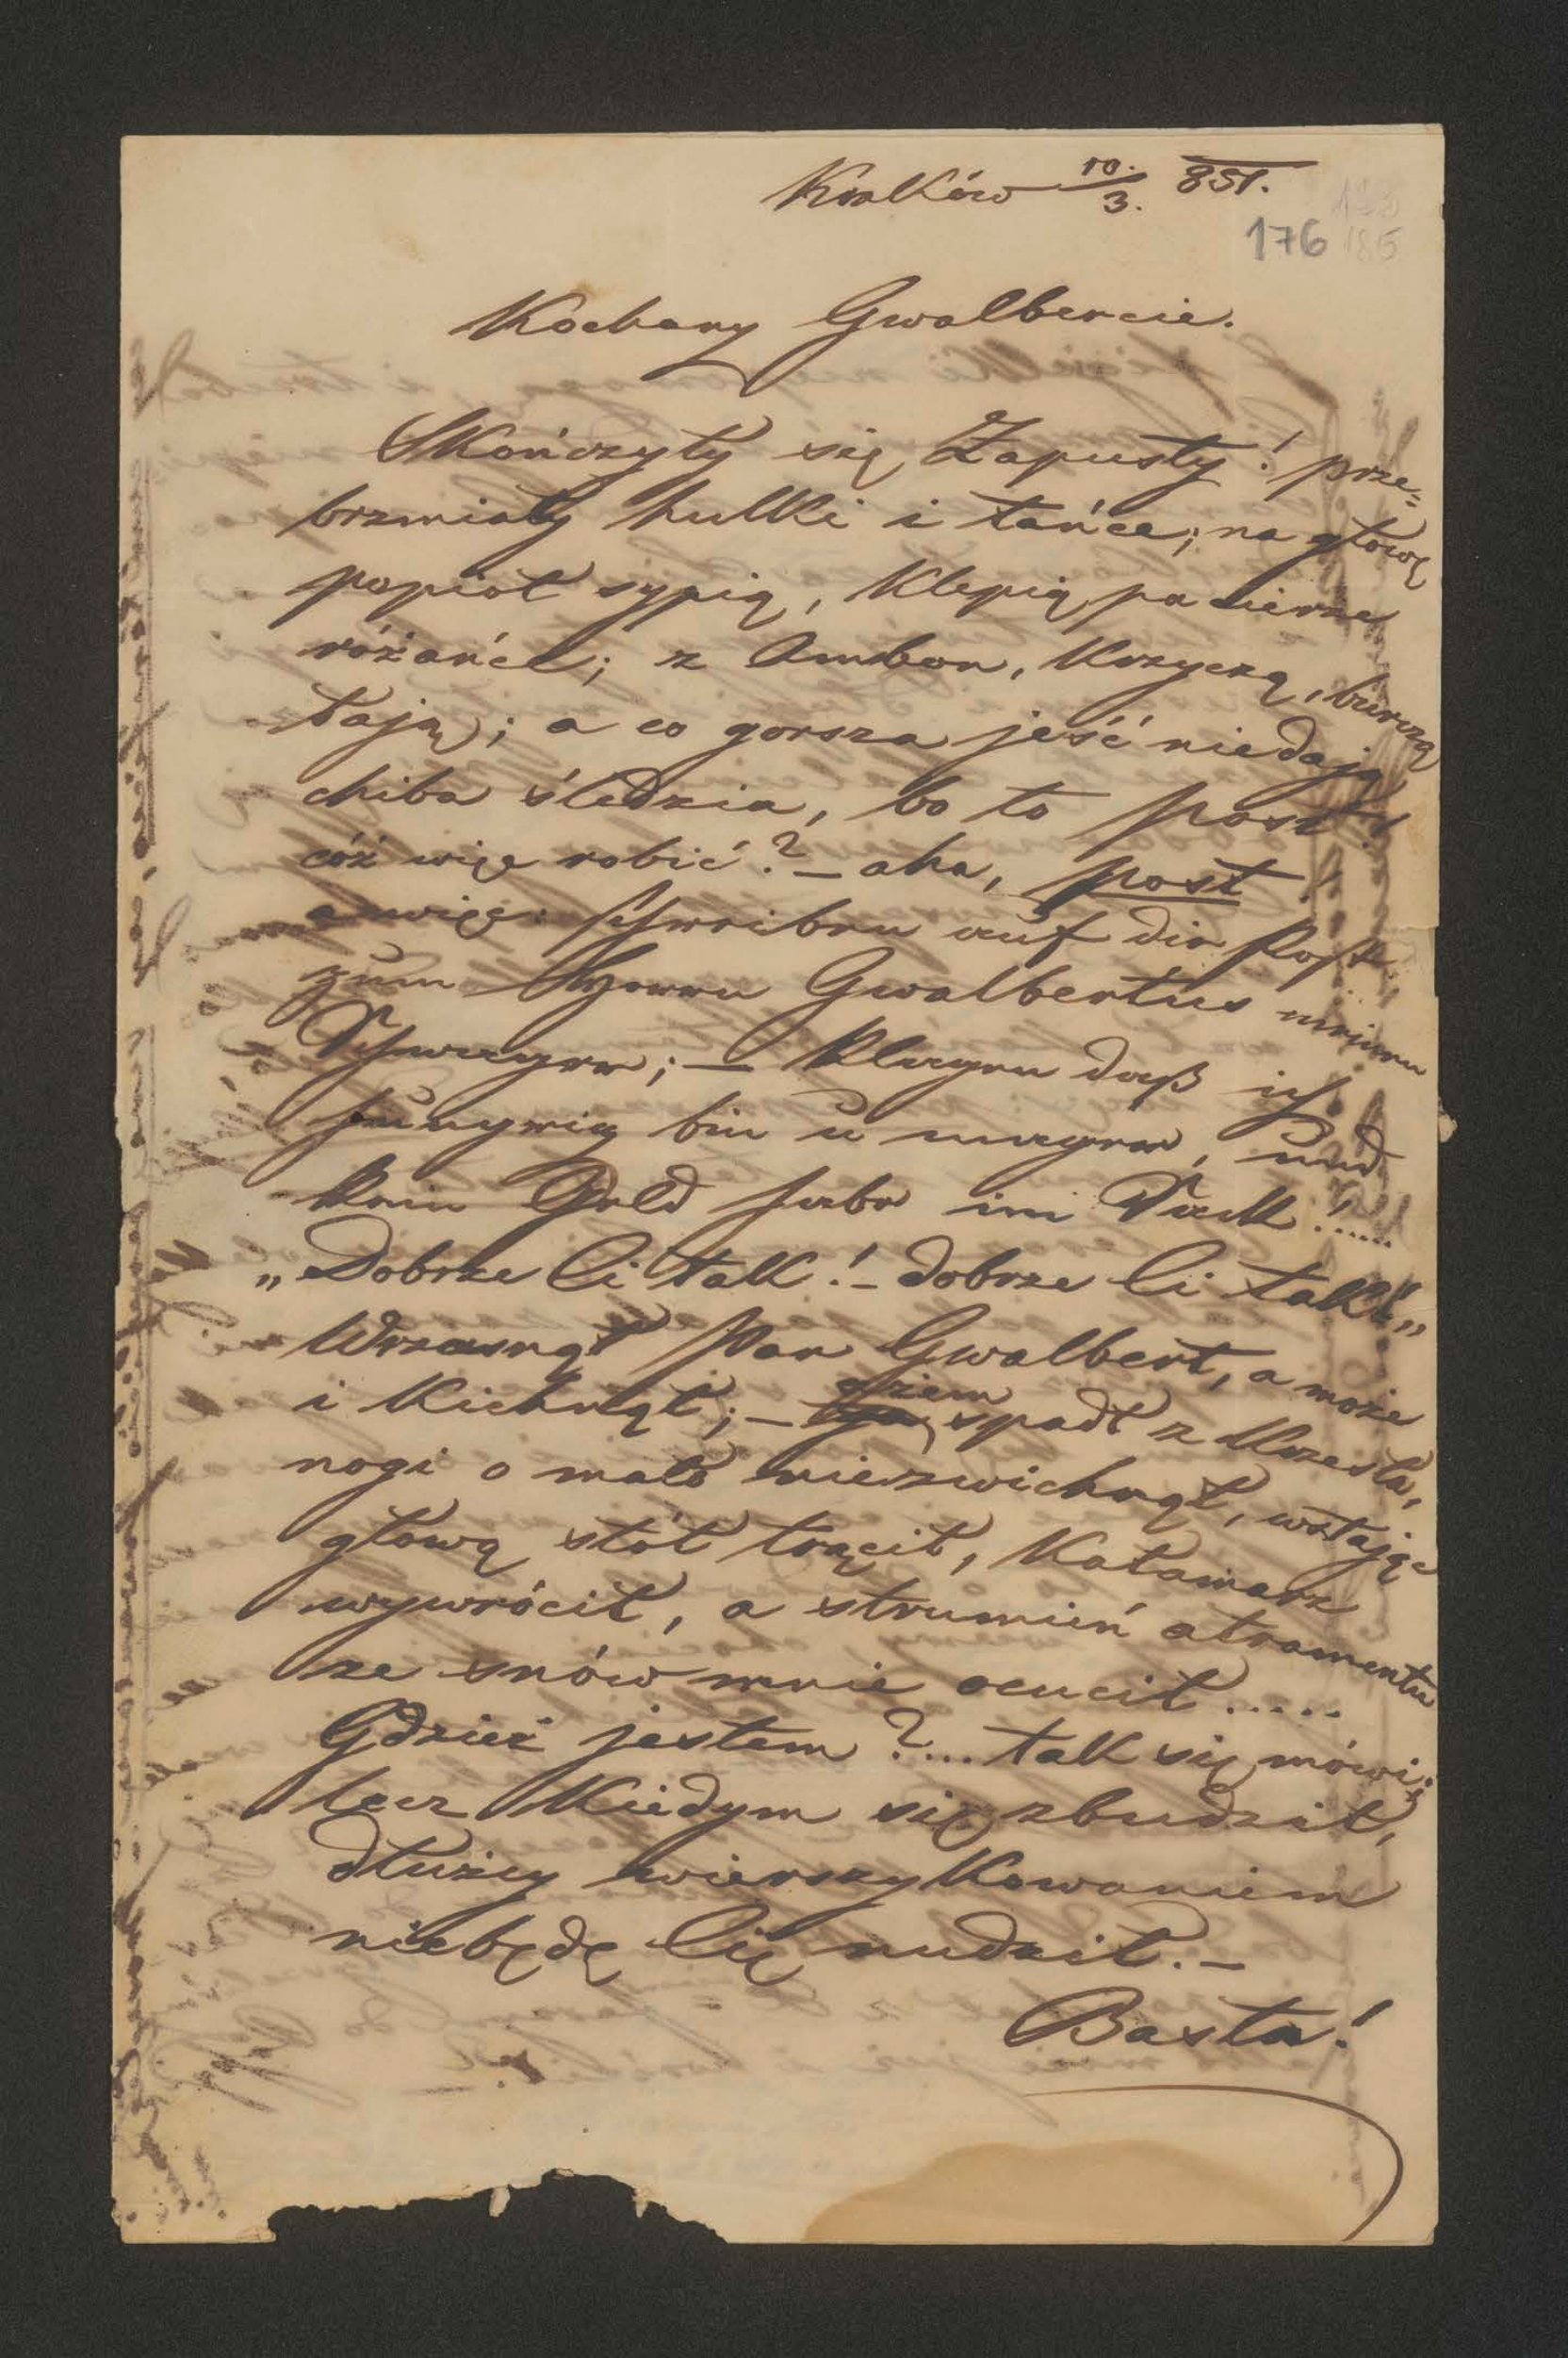 Kraków 10./3. 851.
176
185
Kochany Gwalbercie.
Skończyły się Zapusty! prze=
brzmiały hulki i tańce; na głowę
popiół sypią, klepią pacierze
różańce; z Ambon, krzyczą, burczą
łają; a co gorsza jeść niedają
chiba śledzia, bo to post!
cóż więc robić? – aha, post!
a więc: schreiben auf die Post,
zum Herrn Gwalbertus meinem
Schwager; – klagen daß ich
hungrig bin u mager, und
kein Geld habe im Sack!.....
„Dobrze Ci tak! – dobrze Ci tak!„
Wrzasnął Pan Gwalbert, a może
i kichnął; – spadł z krzesła,
nogi o mało niezwichnął, wstając
głową stół trącił, Kałamarz
wywrócił, a strumień atramentu
ze snów mnie ocucił.....
Gdzież jestem?... tak się mówi;
lecz Kiedym się zbudził,
dłużey wierszykowaniem
niebędę Cię nudził. –
Basta!